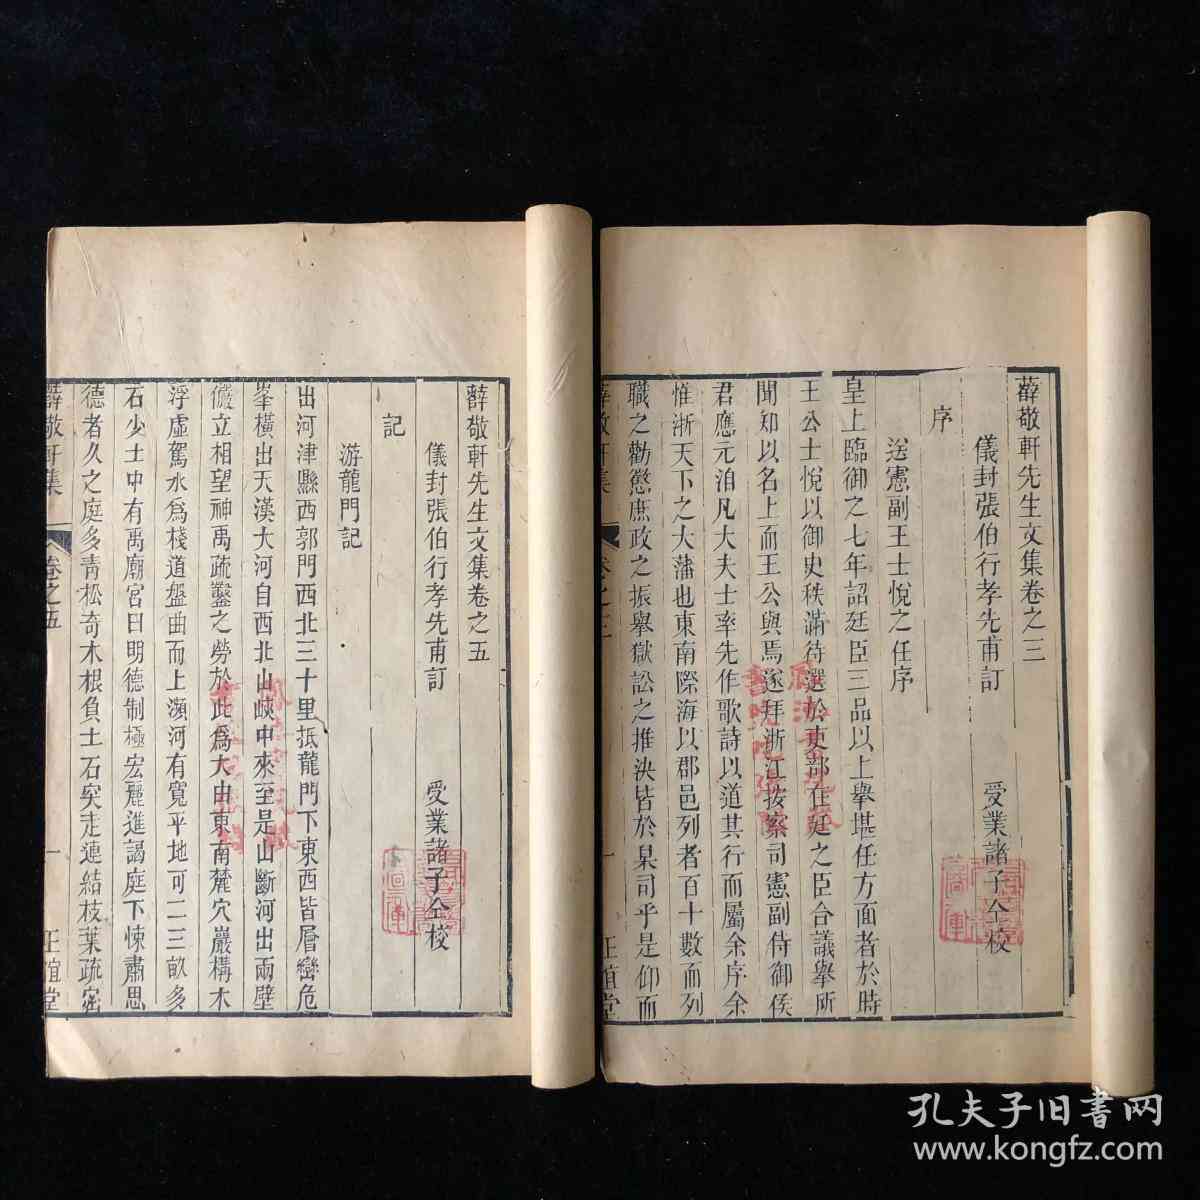 薛敬軒先生文集卷之三
儀封張伯行孝先甫訂 受業諸子仝校
序
送憲副王士悅之任序
皇上臨御之七年詔廷臣三品以上舉堪任方面者於時
王公士悅以御史秩滿待選於吏部在廷之臣合議舉所
聞知以名上而王公與焉遂拜浙江按察司憲副侍御侯
君應元洎凡大夫士率先作歌詩以道其行而屬余序余
惟浙天下之大藩也東南際海以郡邑列者百十數而列
職之勸懲庶政之振舉獄訟之推決皆於臬司乎是仰而
薛敬軒集 卷之三 一 正誼堂
薛敬軒先生文集卷之五
儀封張伯行孝先甫訂 受業諸子仝校
記
游龍門記
出河津縣西郭門西北三十里抵龍門下東西皆層巒危
峯橫出天漢大河自西北山峽中來至是山斷河出兩壁
儼立相望神禹疏鑿之勞於此爲大由東南麓穴巖構木
浮虛駕水爲棧道盤曲而上瀕河有寬平地可二三畝多
石少土中有禹廟宮曰明德制極宏麗進謁庭下悚肅思
德者久之庭多青松奇木根負土石突走連結枝葉疏密
薛敬軒集 卷之五 一 正誼堂
孔夫子旧書网
www.kongfz.com